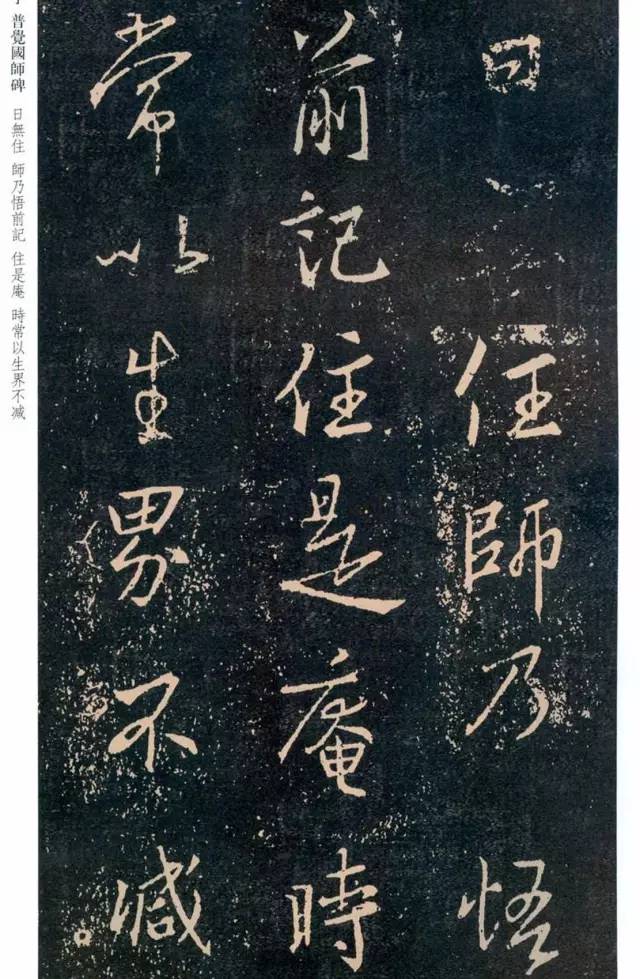 日 住師乃悟
前記住是庵時
常以生界不減
普覺國師碑 日無住 師乃悟前記 住是庵 時常以生界不减